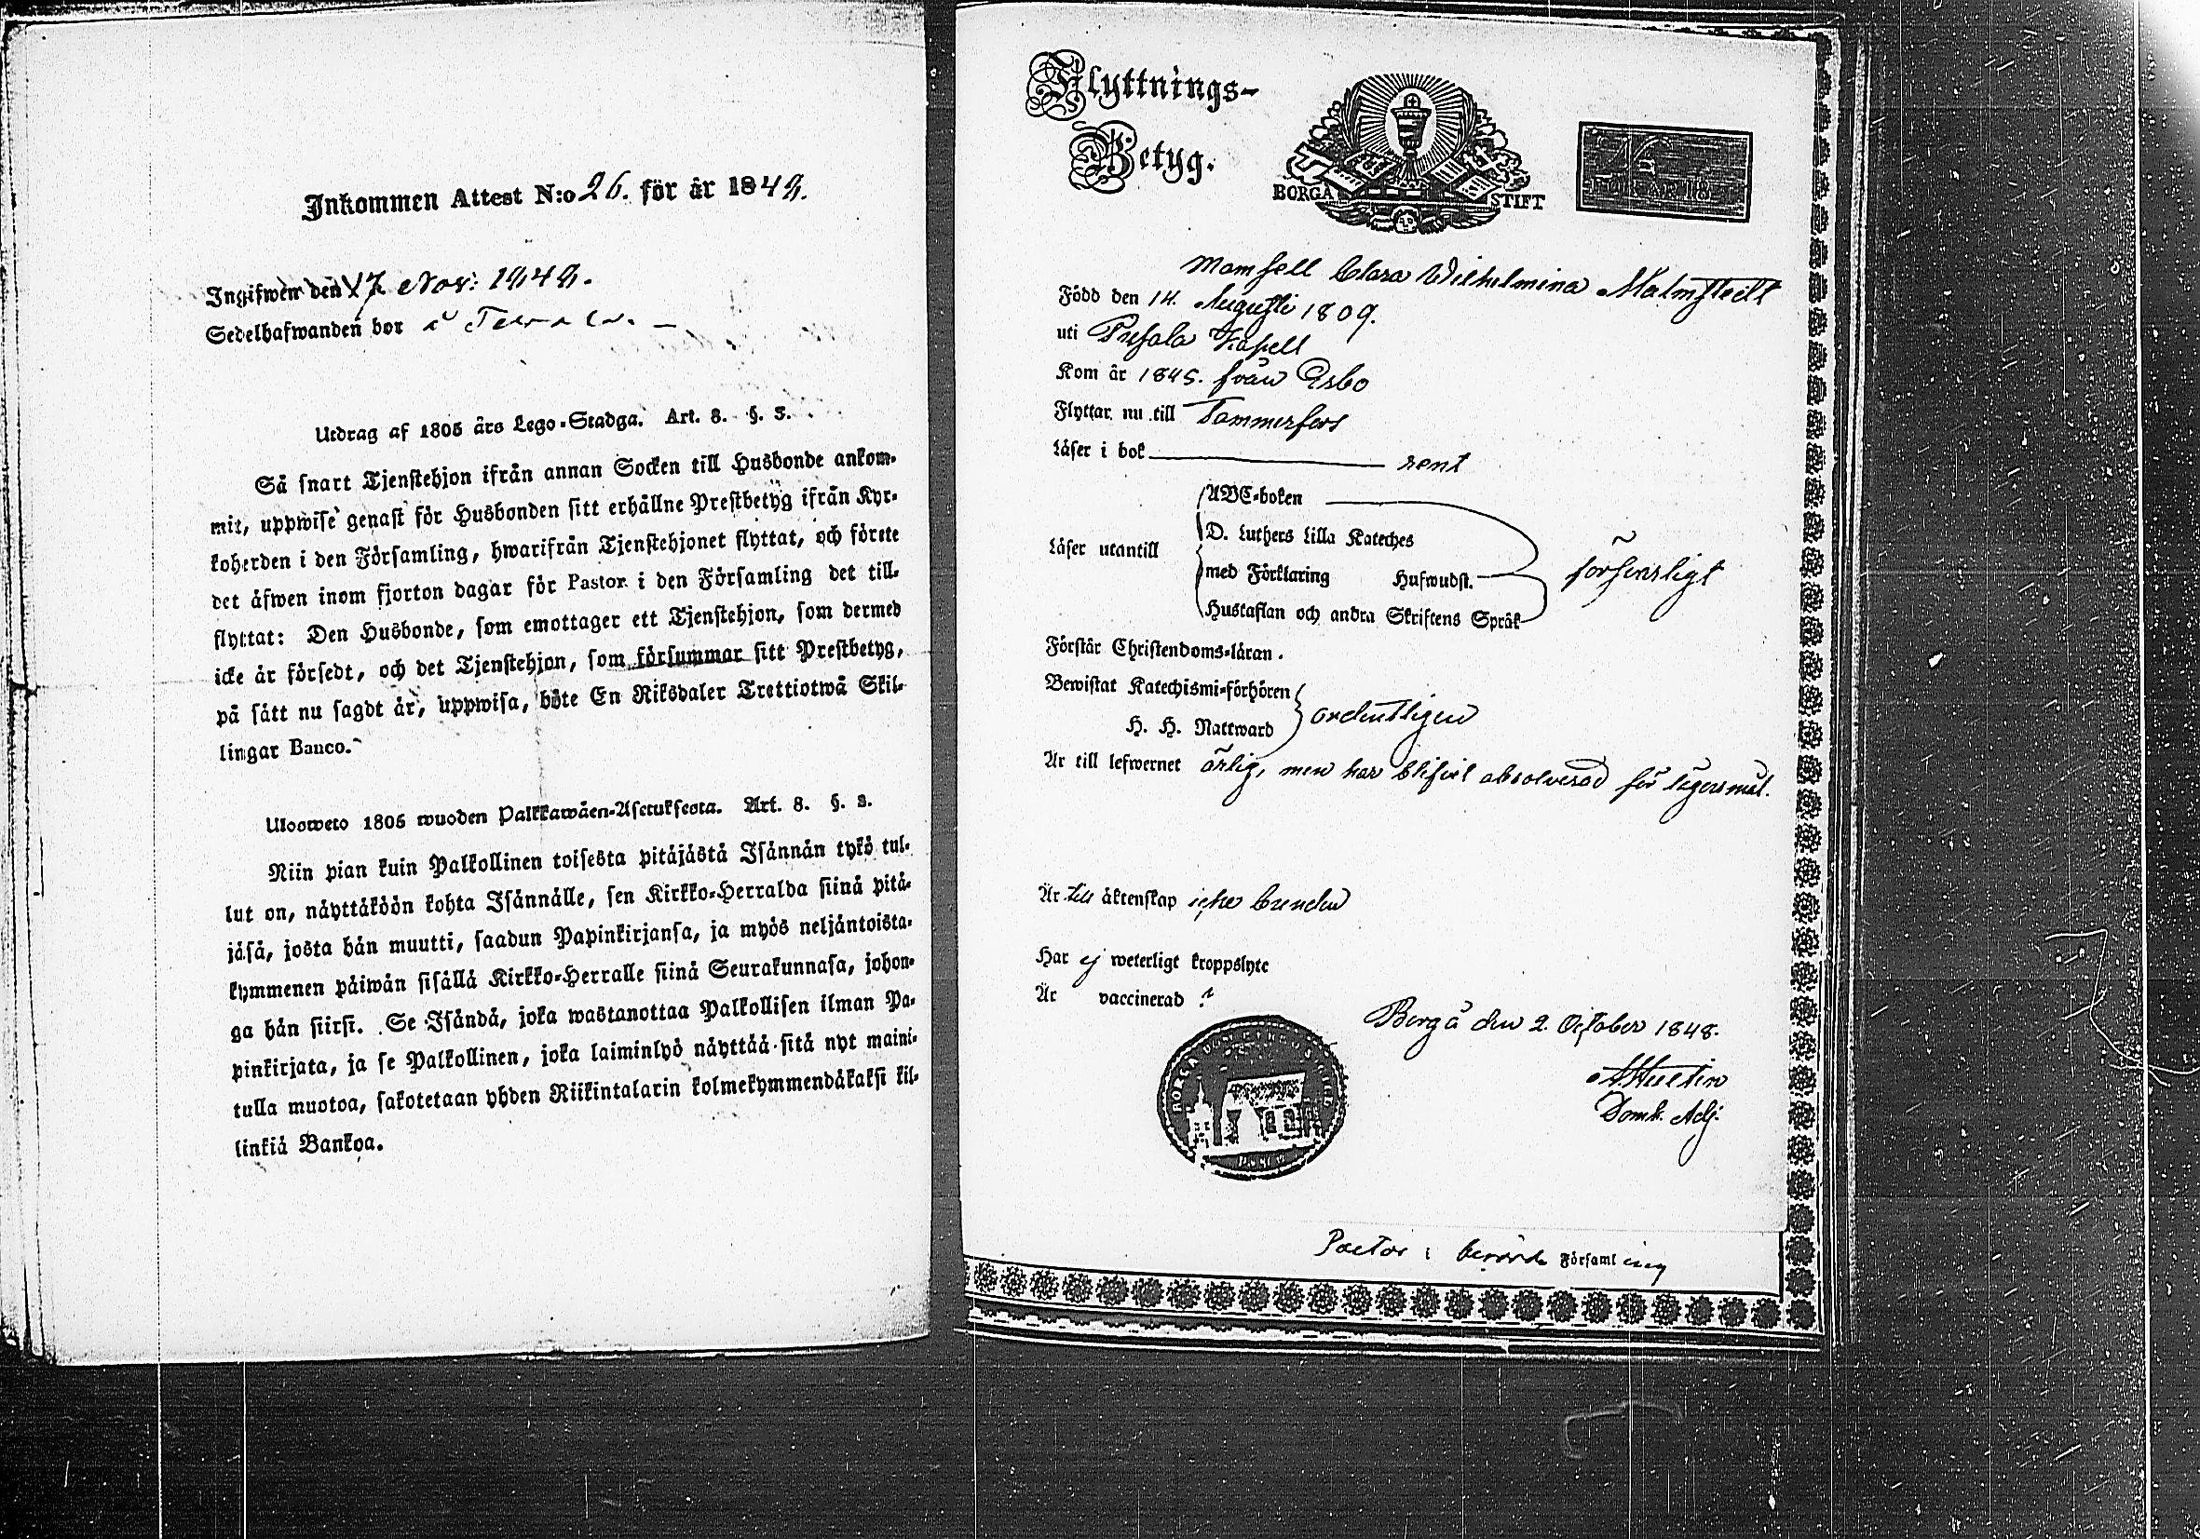 Inkommen Attest N:o 26. för år 1848.
Ingifwen den 17 Nov: 1848.
Sedelhafwanden bor å
Utdrag af 1805 års Lego-Stadga. Art. 8. §. 3.
Så snart Tjenstehjon ifrån annan Socken till Husbonde ankom-
mit, uppwise genast för Husbonden sitt erhållne Prestbetyg ifrån Kyr-
koherden i den Församling, hwarifrån Tjenstehjonet flyttat, och förete
det äfwen inom fjorton dagar för Pastor i den Församling det till-
flyttat: Den Husbonde, som emottager ett Tjenstehjon, som dermed
icke är försedt, och det Tjenstehjon, som försummar sitt Prestbetyg,
på sätt nu sagdt är, uppwisa, böte En Riksdaler Trettiotwå Skil-
lingar Banco.
Ulosweto 1805 wuoden Palkkawäen-Asetuksesta. Art. 8. §. 3.
Niin pian kuin Palkollinen toisesta pitäjästä Isännän tykö tul-
lut on, näyttäköön kohta Isännälle, sen Kirkko-Herralda siinä pitä-
jäsä, josta hän muutti, saadun Papinkirjansa, ja myös neljäntoista-
kymmenen päiwän sisällä Kirkko-Herralle siinä Seurakunnasa, johon-
ga hän siirsi. Se Isändä, joka wastanottaa Palkollisen ilman Pa-
pinkirjata, ja se Palkollinen, joka laiminlyö näyttää sitä nyt maini-
tulla muotoa, sakotetaan yhden Riikintalarin kolmekymmendäkaksi kil-
linkiä Bankoa.
Flyttnings-
Betyg.
BORGÅ STIFT
No
FÖR ÅR 18
Mamsell Clara Wilhelmina Malmstedt
Född den 14. Augusti 1809.
uti Kapell
Kom år 1845. från Esbo
Flyttar nu till Tammerfors
Läser i bok rent
ABC-boken
Läser utantill
D. Luthers Lilla Kateches
med Förklaring Hufwudst.
försvarligt
Hustaflan och andra Skriftens Språk
Förstår Christendoms-läran.
Bewistat Katechismi-förhören
H. H. Nattward
ordentligen
Är till lefwernet ärlig, men har blifvit absolverad för lägersmål.
Är till äktenskap icke bunden
Har ej weterligt kroppslyte
Är vaccinerad ?
Borgå den 2. October 1848.
Domk. Adj.
Pastor i berörde Församling